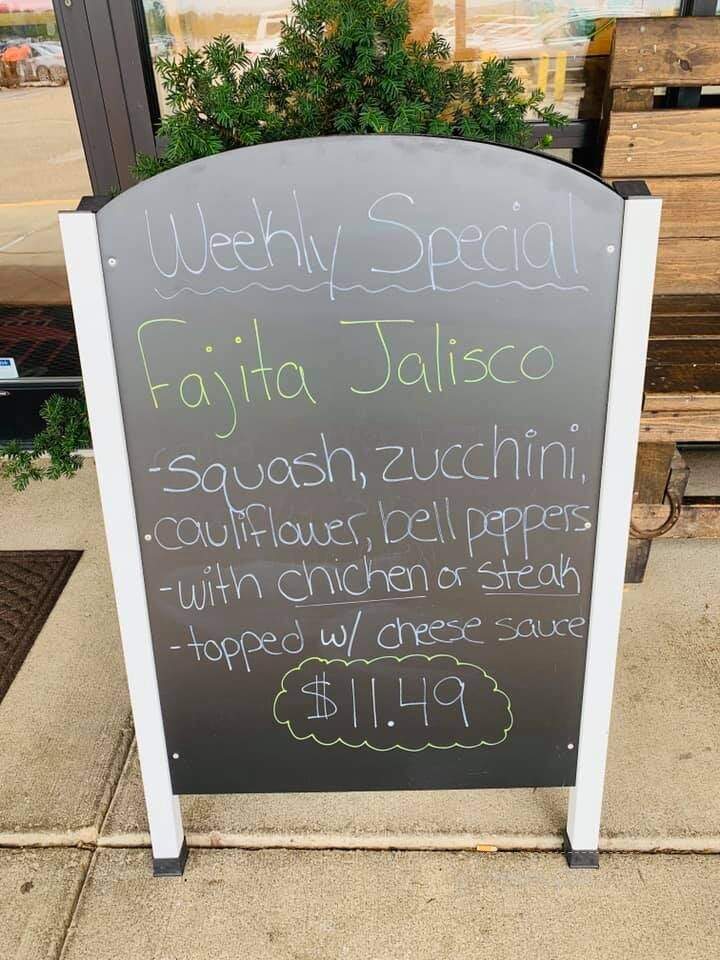 Weekly Special
Fajita Jalisco
-squash, zucchini,
cauliflower, bell peppers
-with chicken or steak
-topped w/ cheese sauce
$11.49